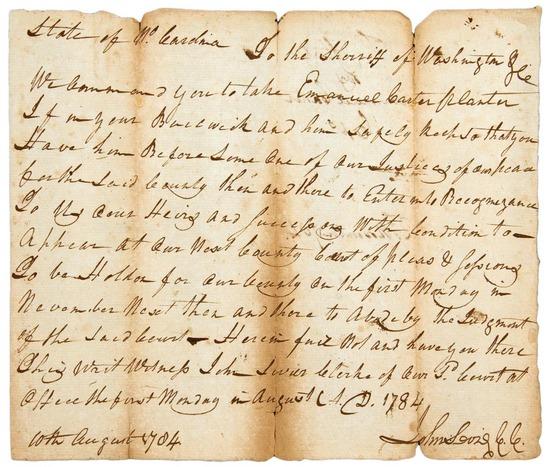 State of No. Carolina To the Sherriff of Washington &c
We Command you to take Emanuel Carter planter
If in your Baliwick and him Safely Keep So that you
Have him Before Some One of Our Justices of Our peace
for the Said County then and there to Enter into Recognizance
To Us Our Heirs and Successors With Condition to
Appear at Our Next County Court of pleas & Sessions
To be Holdon for our County On the first Monday in
November Next then and there to Abide by the Judgment
of the Said Court – Herein fail Not and have you there
This Writ Witness John Sevier Clerke of Our Sd. Court at
Office the first Monday in August A. D. 1784
10th August 1784 John Sevier C.C.